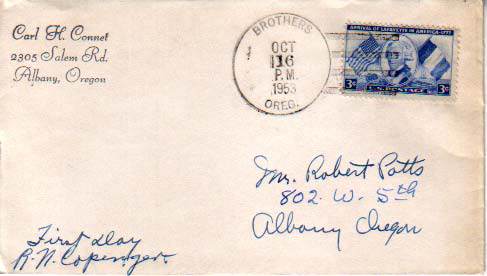 Carl H. Connet
2305 Salem Rd.
Albany, Oregon
BROTHERS
OCT
16
P.M.
1953
OREG.
ARRIVAL OF LAFAYETTE IN AMERICA-1777
3¢ U.S. POSTAGE 3¢
Mr. Robert Potts
802 W. 5th
Albany Oregon
First day
R.N. Copenger